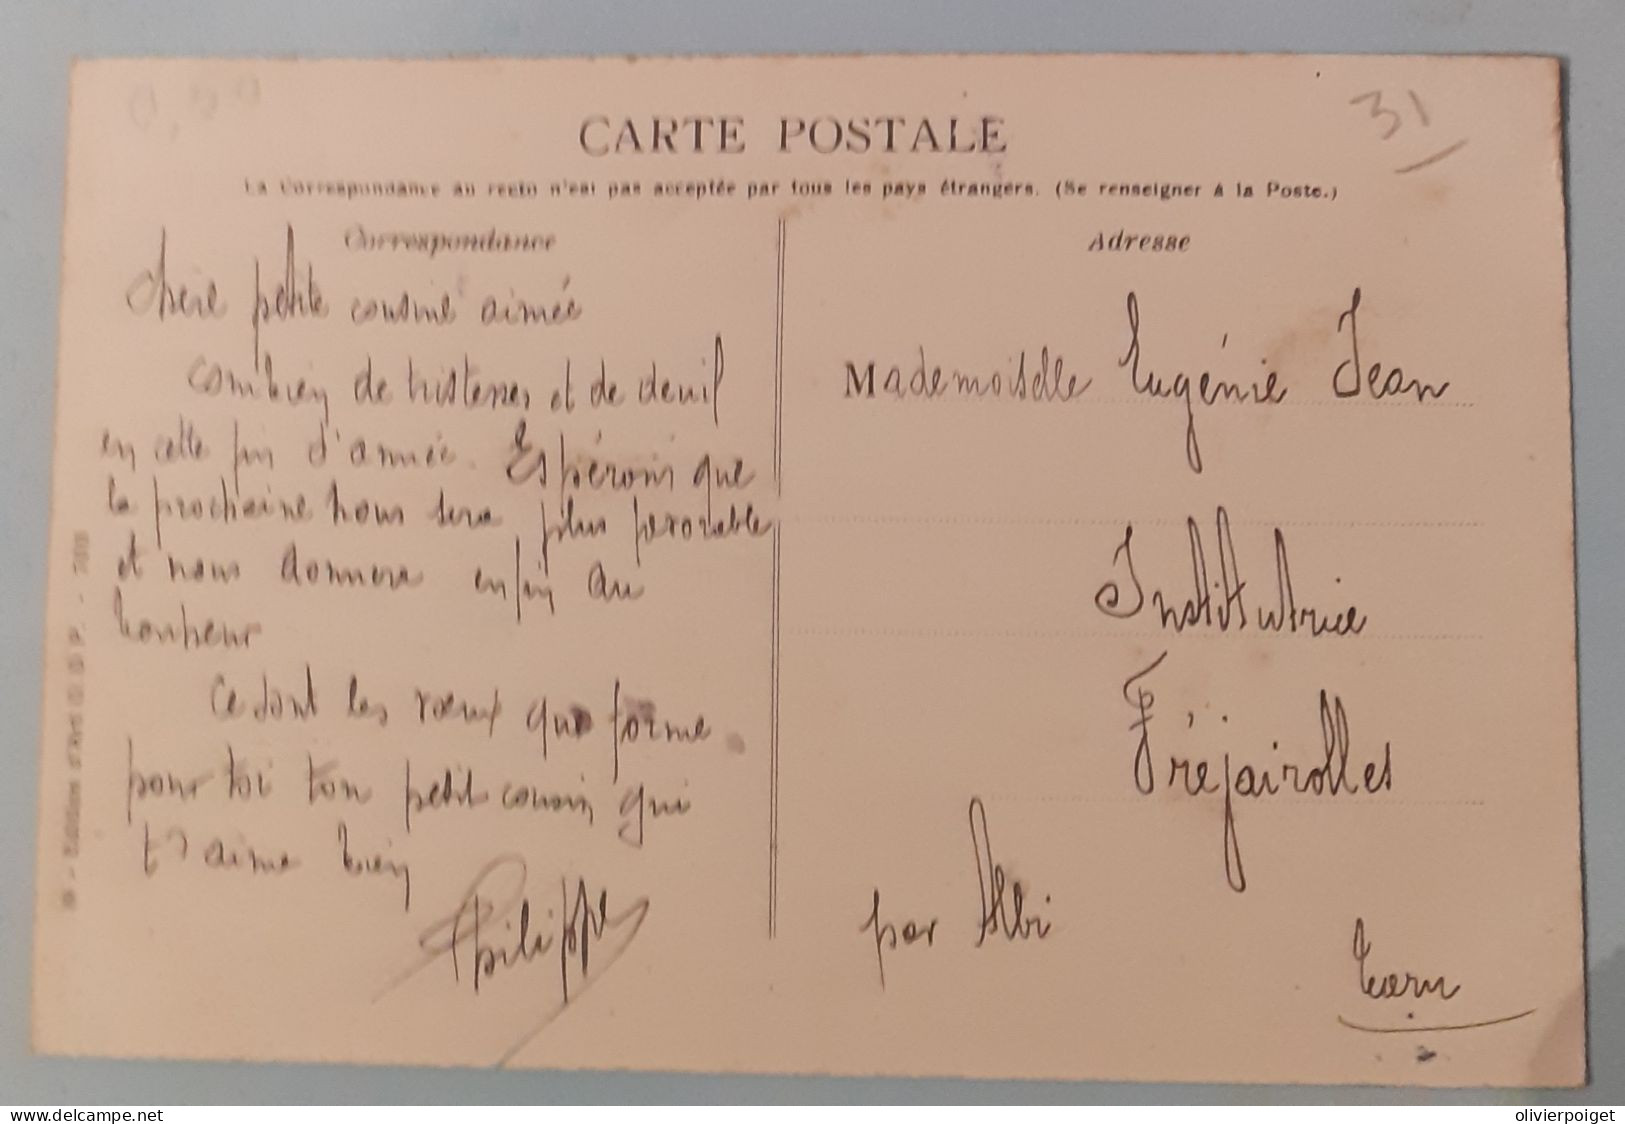 0,50
31
CARTE POSTALE
La Correspondance au recto n'est pas acceptée par tous les pays étrangers. (Se renseigner à la Poste.)
Correspondance
Chere petite cousine aimée
combien de tristesses et de deuil
en cette fin d'année. Espérons que
la prochaine nous sera plus favorable
et nous donnera enfin du
bonheur
Ce sont les vœux que forme
pour toi ton petit cousin qui
t'aime bien
Philippe
Adresse
Mademoiselle Eugénie Jean
Institutrice
Fréjairolles
par Albi
Tarn
Editions d'Art
delcampe.net
olivierpoiget